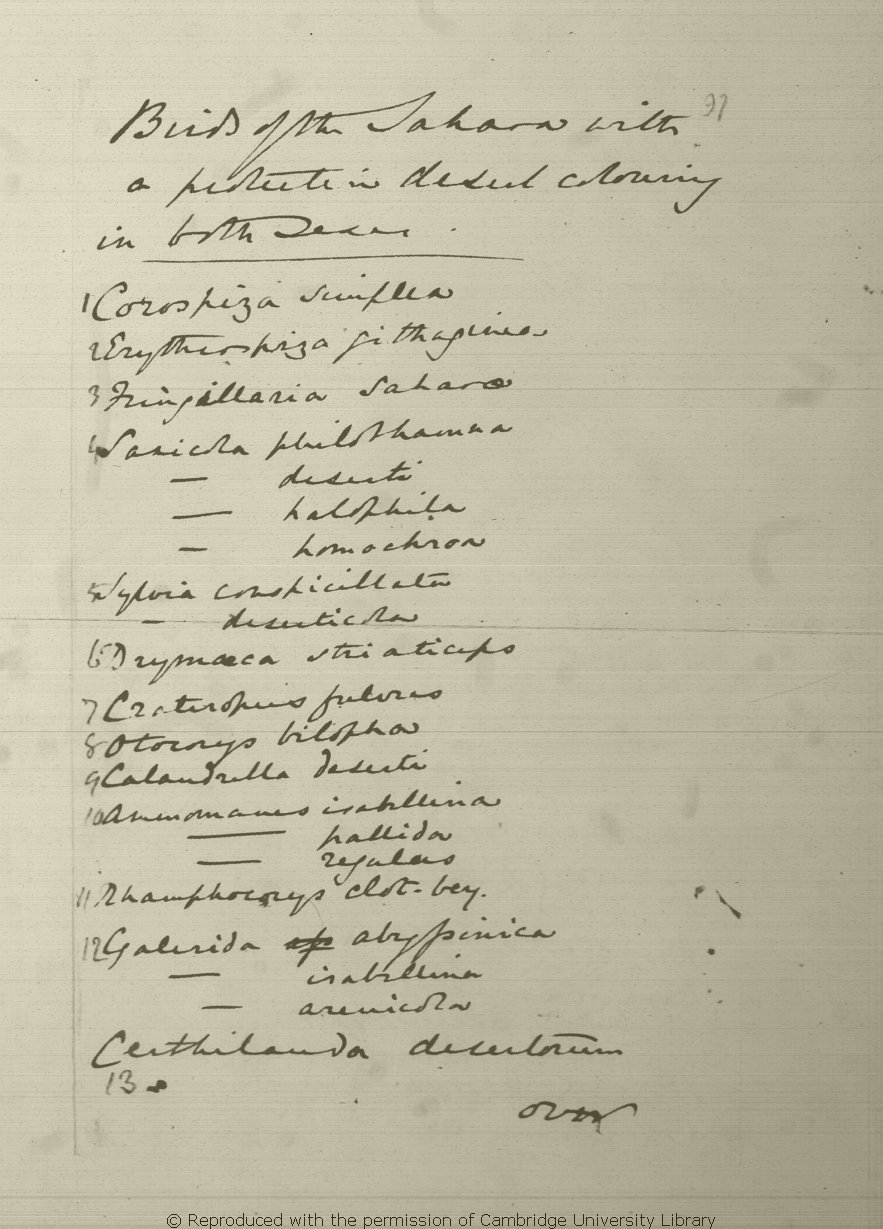 97
Birds of the Sahara with
a protective desert colouring
in both Sexes.
1 Corospiza simplex
2 Erythrospiza githaginea
3 Fringillaria saharae
4 Saxicola philothamna
— deserti
— halophila
— homochroa
5 Sylvia conspicillata
— deserticola
6 Drymoeca striaticeps
7 Crateropus fulvus
8 Otocorys bilopha
9 Calandrella deserti
10 Ammomanes isabellina
— pallida
— regulus
11 Rhamphocorys clot-bey.
12 Galerida abyssinica
— isabellina
— arenicola
Certhilauda desertorum
13
over
© Reproduced with the permission of Cambridge University Library